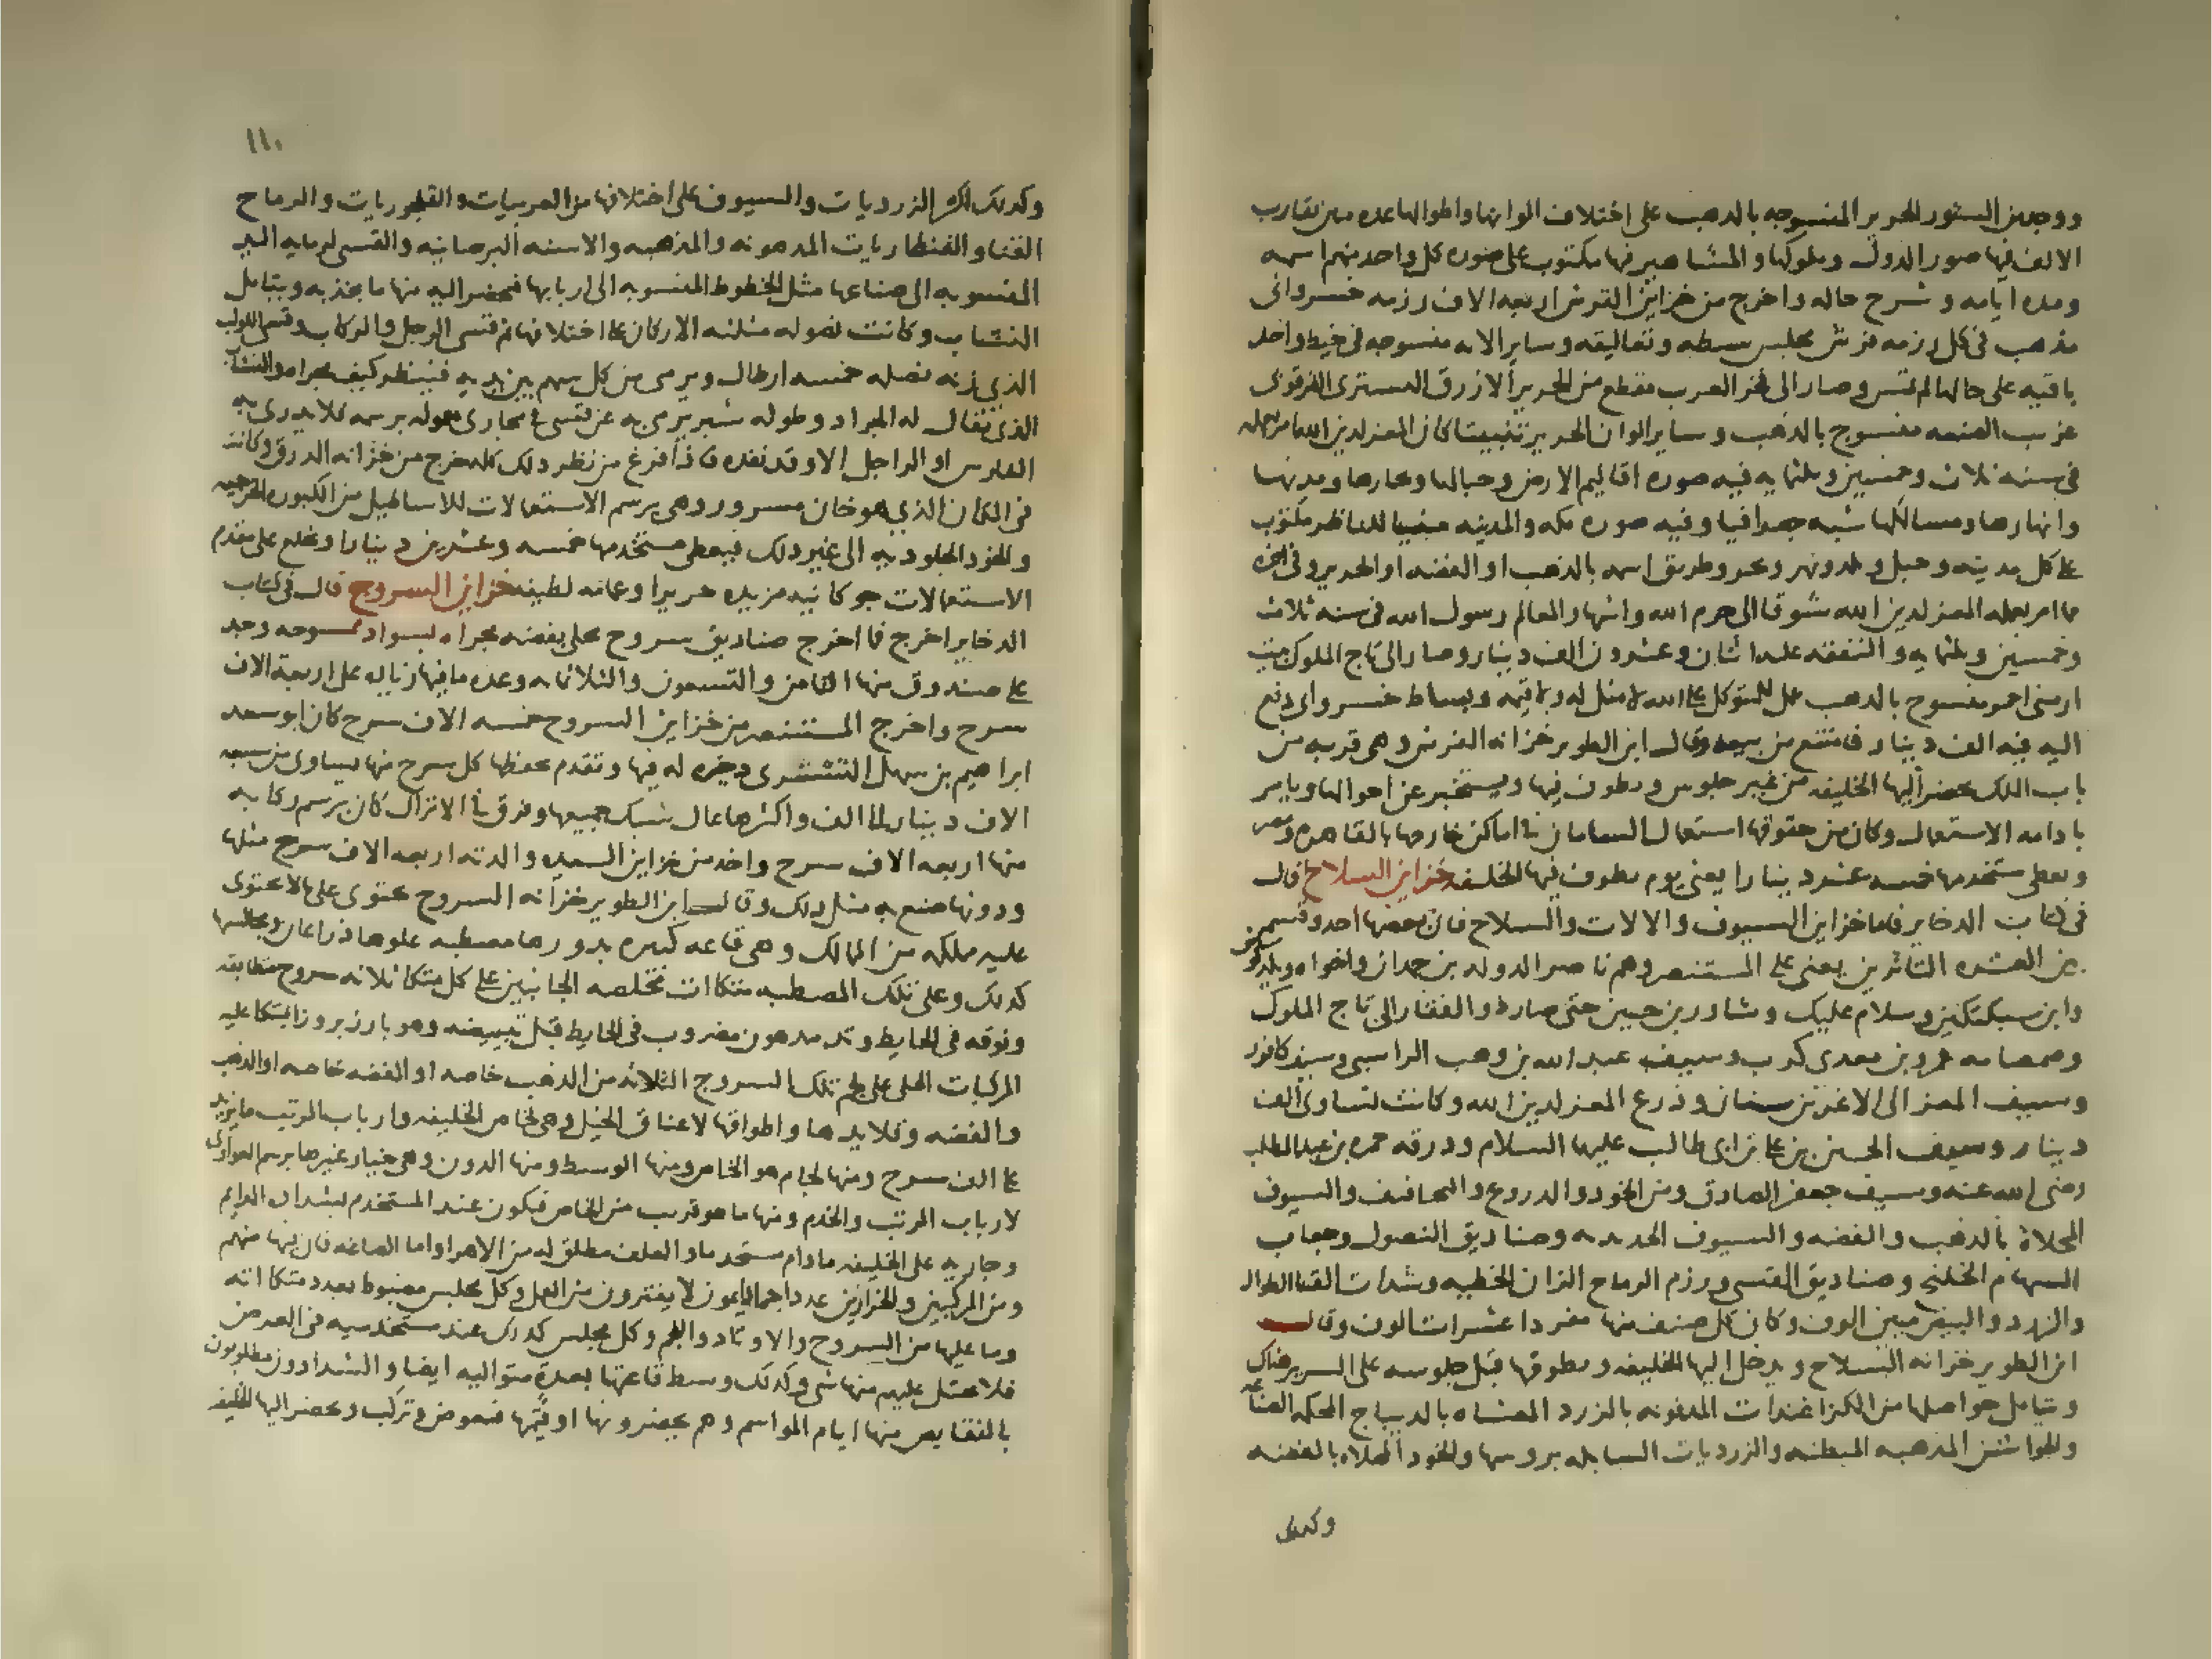 ووجد من الستور الحرير المنسوجه بالدهب على اختلاف الوانها واطوالها عده مين تقارب
الالف فيها صور الدول وملوكها والمشاهير فيها مكتوب على صوره كل واحد منهم اسمه
ومده ايامه وشرح حاله واخرج من خزاين الفرش اربعه الاف رزمه خسروانى
مذهب فى كل رزمه فرش مجلس ببسطه وتعاليقه وساير الاته منسوجه فى خيط واحد
باقيه على حالها لم تمس وصار الى فخر العرب مقطع من الحرير الازرق التسترى القرقوبى
غريب الصنعه منسوج بالذهب وساير الوان الحرير كان المعز لدين الله امر بعمله
فى سنه ثلاث وخمسين وثلثمايه فيه صوره اقاليم الارض وجبالها وبحارها ومدنها
وانهارها ومسالكها شبه جغرافيا وفيه صوره مكه والمدينه مبينه للناظر مكتوب
على كل مدينه وجبل وبلد ونهر وبحر وطريق اسمه بالذهب او الفضه او الحرير وفى اخره
مما امر بعمله المعز لدين الله شوقا الى حرم الله واشهارا لمعالم رسول الله فى سنه ثلاث
وخمسين وثلثمايه والنفقه عليه اثنان وعشرون الف دينار وصار الى تاج الملوك بيت
ارمنى احمر منسوج بالدهب عمل للمتوكل على الله لا مثل له ولا قيمه وبساط خسروانى دفع
اليه فيه الف دينار فامتنع من بيعه وقال ابن الطوير خزانه الفرش وهى قريبه من
باب الملك يحضر اليها الخليفه من غير جلوس ويطوف فيها ويستخبر عن احوالها ويامر
بادامه الاستعمال وكان من حقوقها استعمال السامان فى اماكن خارجها بالقاهره ومصر
ويعطى مستخدمها خمسه عشر دينارا يعنى يوم يطوف فيها الخليفه خزاين السلاح قال
فى كتاب الدخاير فاما خزاين السيوف والالات والسلاح فان بعضها اخذ وقسم بين
من العشره الثائرين يعنى على المستنصر وهم ناصر الدوله بن حمدان واخواه وبلدكوش
وابن سبكتكين وسلام عليك وشاور بن حسين حتى صار ذو الفقار الى تاج الملوك
وصمصامه عمرو بن معدى كرب وسيف عبد الله بن وهب الراسبى وسيف كافور
وسيف المعز الى الاعز بن سنان ودرع المعز لدين الله وكانت تساوى الف
دينار وسيف الحسين بن على بن ابى طالب عليهما السلام ودرقه حمزه بن عبد المطلب
رضى الله عنه وسيف جعفر الصادق ومن الخود والدروع والتجافيف والسيوف
المحلاة بالدهب والفضه والسيوف الحديديه وصناديق النصول وجعاب
السهام الخلنج وصناديق القسى ورزم الرماح الزان الخطيه وشدات القنا الطوال
والزرد والبيض مين الوف وكان كل صنف منها مفردا عشرات الوف وقال
ابن الطوير خزانه السلاح ويدخل اليها الخليفه ويطوفها قبل جلوسه على السرير هناك
ويتامل حواصلها من الكزاغندات المدفونه بالزرد المغشاه بالديباج المحكمه الصناعه
والجواشن المذهبه المبطنه والزرديات السابله بروسها والخود المحلاه بالفضه
وكدلك
١١٠
وكدلك اكثر الزرديات والسيوف على اختلافها من العربيات والقلجوريات والرماح
القنا والقنطاريات المدهونه والمذهبه والاسنه البرصانيه والقسى لرمايه اليد
المنسوبه الى صناعها مثل الخطوط المنسوبه الى اربابها فيحضر اليه منها ما يجذبه ويتامل
النشاب وكانت نصوله مثلثه الاركان على اختلافها ثم قسى الرجل والركاب وقسى اللولب
الذى زنه نصله خمسه ارطال ويرمى من كل سهم بين يديه فينظر كيف مجراه والنشاب
الذى يقال له الجراد وطوله شبر يرمى به عن قسى فى مجارى معموله برسمه فلا يدرى به
الفارس او الراجل الا وقد نفذه فاذا فرغ من نظر ذلك كله خرج من خزانه الدرق وكانت
فى المكان الذى هو خان مسرور وهى برسم الاستعمالات للاساطيل من الكبوره الخرجيه
والخود الجلوديه الى غير ذلك فيعطى مستخدمها خمسه وعشرين دينارا ويخلع على مقدم
الاستعمالات جوكانيه مزيده حريرا وعمامه لطيفه خزاين السروج قال فى كتاب
الدخاير اخرج فما اخرج صناديق سروج محلى بفضه مجراه بسواد ممسوحه وجد
على صندوق منها الثامن والتسعون والثلاثمايه وعده ما فيها زياده على اربعة الاف
سرج واخرج المستنصر من خزاين السروج خمسه الاف سرج كان ابو سعد
ابراهيم بن سهل التستشرى دخيره له فيها وتقدم بحفظها كل سرج منها يساوى من سبعه
الاف دينار الى الف واكثرها عال سبك جميعها وفرق فى الاتراك كان برسم ركابه
منها اربعه الاف سرج واخد من خزاين السيده والدته اربعه الاف سرج مثلها
ودونها صنع به مثل ذلك وقال ابن الطوير خزانه السروج تحتوى على ما لا تحتوى
عليه مملكه من الممالك وهى قاعه كبيره بدورها مصطبه علوها ذراعان ومجالسها
كدلك وعلى تلك المصطبه متكاات مخلصه الجانبين على كل متكا ثلاثه سروج متطابقه
وفوقه فى الحايط وتد مدهون مضروب فى الحايط قبل تبييضه وهو بارز بروزا متكا عليه
المركبات الحلى على لجم تلك السروج الثلاثه من الدهب خاصه او الفضه خاصه او الدهب
والفضه وقلايدها واطواقها لاعناق الخيل وهى لخاص الخليفه وارباب المراتب ما يزيد
على الف سرج ومنها لجام هو الخاص ومنها الوسط ومنها الدون وهى خيار غيرها برسم العوارى
لارباب المراتب والخدم ومنها ما هو قريب من الخاص فيكون عند المستخدم بشداده الدايم
وجاريه على الخليفه ما دام مستخدما والعلف مطلق له من الاهرا واما الصاغه فان فيها منهم
ومن المركبين والخرازين عددا جما دايمون لا يفترون من العمل وكل مجلس مضبوط بعدد متكااته
وما عليها من السروج والاوتاد واللجم وكل مجلس كدلك عند مستخدميه فى العرض
فلا يختل عليهم منها شى وكدلك وسط قاعتها بعدة متواليه ايضا والشدادون مطلوبون
بالنقايص منها ايام المواسم وهم يحضرونها او قيمها فيعوض وتركب ويحضر اليها الخليفه